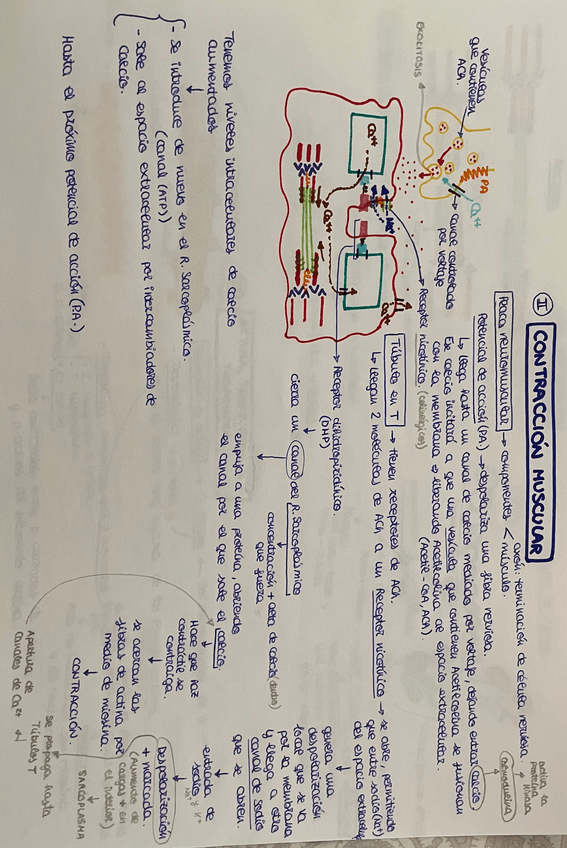 II CONTRACCIÓN MUSCULAR
Placa neuromuscular → componentes < axón: terminación de célula nerviosa.
músculo.
activa la
proteína
kinasa
calmodulina
Potencial de acción (PA.) → despolariza una fibra nerviosa.
↳ llega hasta un canal de calcio mediado por voltaje, dejando entrar calcio
Ese calcio incitará a que una vesícula que contienen Acetilcolina se fusionan
con la membrana → liberando Acetilcolina al espacio extracelular.
(Acetil-CoA, ACh)
vesículas
que contienen
ACh.
EXOCITOSIS
PA
Ca++
canal controlado
por voltaje
Receptor nicotínico (colinérgicos)
Na+
Ca++
Ca++
Ca++
Túbulo en T → tienen receptores de ACh.
↳ llegan 2 moléculas de ACh a un Receptor nicotínico → se abre, permitiendo
que entre sodio (Na+)
del espacio extracelular
genera una
despolarización
local que se va
por la membrana
y llega a otro
canal de sodio
que se abren.
entrada de
sodio
Na+ y K+
Despolarización
+ marcada.
(Aumento de
cargas + en
el interior)
SARCOPLASMA
se propaga hasta
Túbulos T
Apertura de
canales de Ca++
Receptor dihidropiridínico.
(DHP)
cierra un canal del R. Sarcoplásmico
concentración + alta de calcio (dentro)
que fuera
empuja a una proteína, abriendo
el canal por el que sale el calcio
Hace que las
contráctil se
contraiga.
se acercan las
fibras de actina por
medio de miosina.
CONTRACCIÓN.
Tenemos niveles intracelulares de calcio
aumentados
- se introduce de nuevo en el R. Sarcoplásmico.
(canal (ATP))
- sale al espacio extracelular por intercambiadores de
calcio.
Hasta el próximo potencial de acción (PA.)